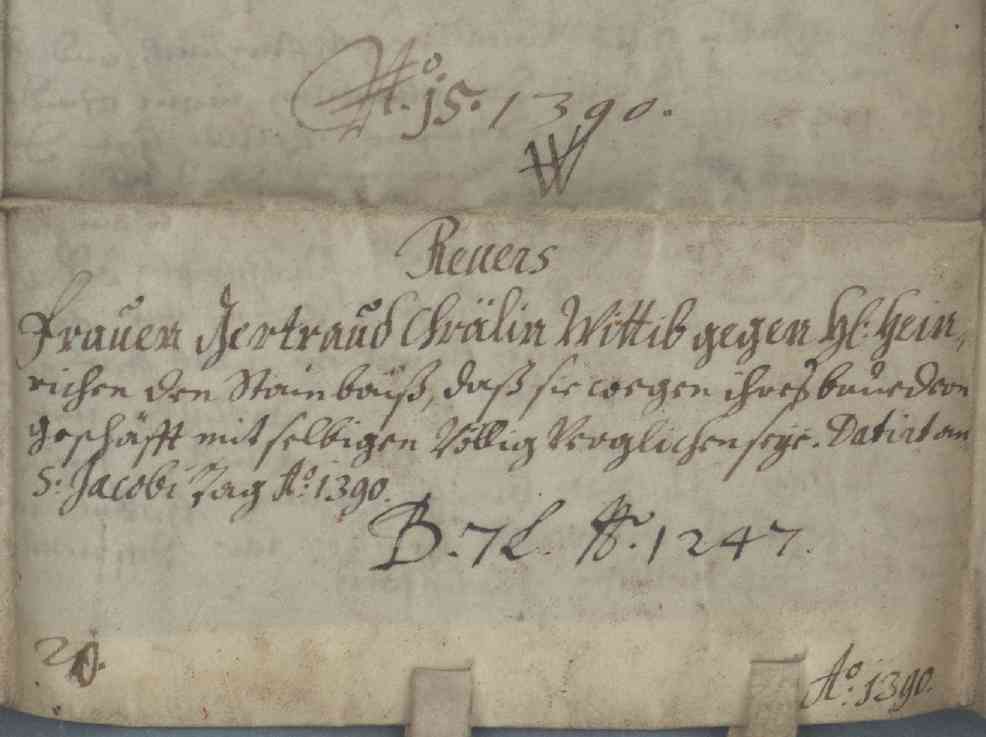 Aº. 15. 1390.
W
Reuers
Frauen Gertraud Chrälin Wittib gegen Hl: Hein,
richen den Stainböuß, daß sie wegen ihres
geschäfft mit selbigen Völlig Verglichen seye. Datirt an
S: Jacobi Tag Aº: 1390.
B. 7 L. 1247.
20.
Aº: 1390.